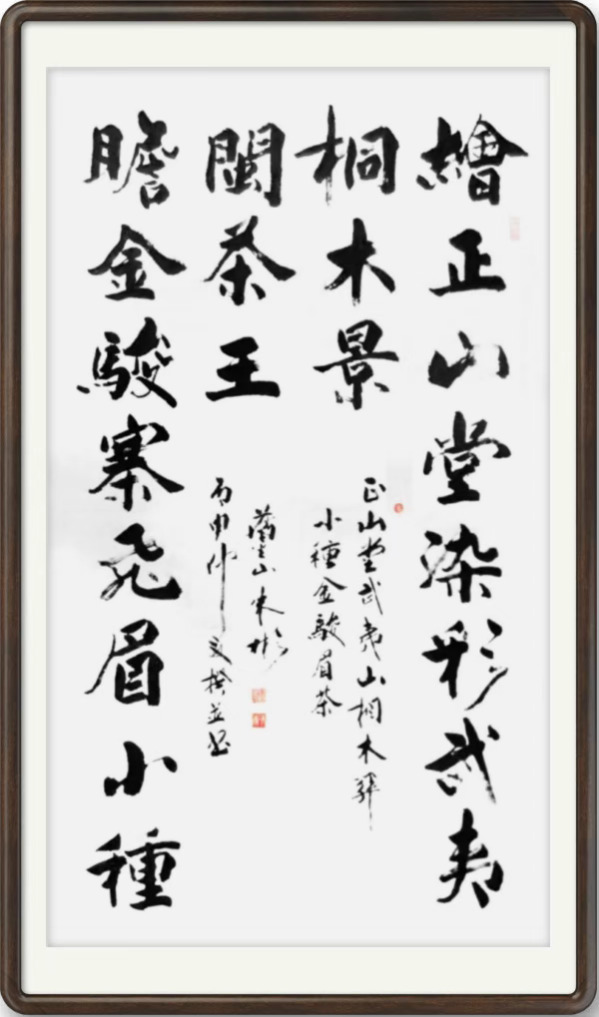 繪正山堂染彩武夷
桐木景
正山堂武夷山桐木
小種金駿眉茶
瞻金駿寨飛眉小種
閩茶王
山 彬
丙申仲 撰並書